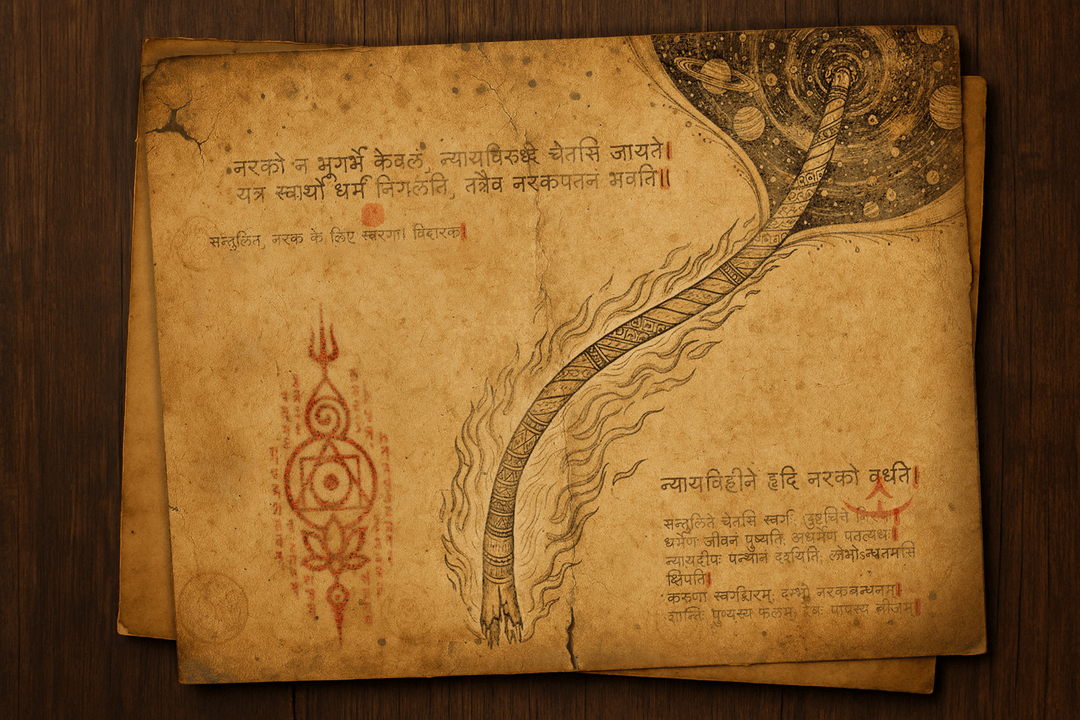 नरको न भूगर्भे केवलं, न्यायविरुध्दे चेतसि जायते।
यत्र स्वार्थो धर्मं निगलति, तत्रैव नरकपतनं भवति॥
सन्तुलित, नरक के लिए स्वरगा। विदारक।
न्यायविहीने हृदि नरको वर्धति।
सन्तुलिते चेतसि स्वर्गः, दुष्टचित्ते
धर्मेण जीवनं पुष्यति, अधर्मेण पतत्यधः।
न्यायदीपः पन्थानं दर्शयति, लोभोऽन्धतमसि
क्षिपति।
करुणा स्वर्गद्वारम्, दम्भो नरकबन्धनम्।
शान्तिः पुण्यस्य फलम्, पापस्य बीजम्।